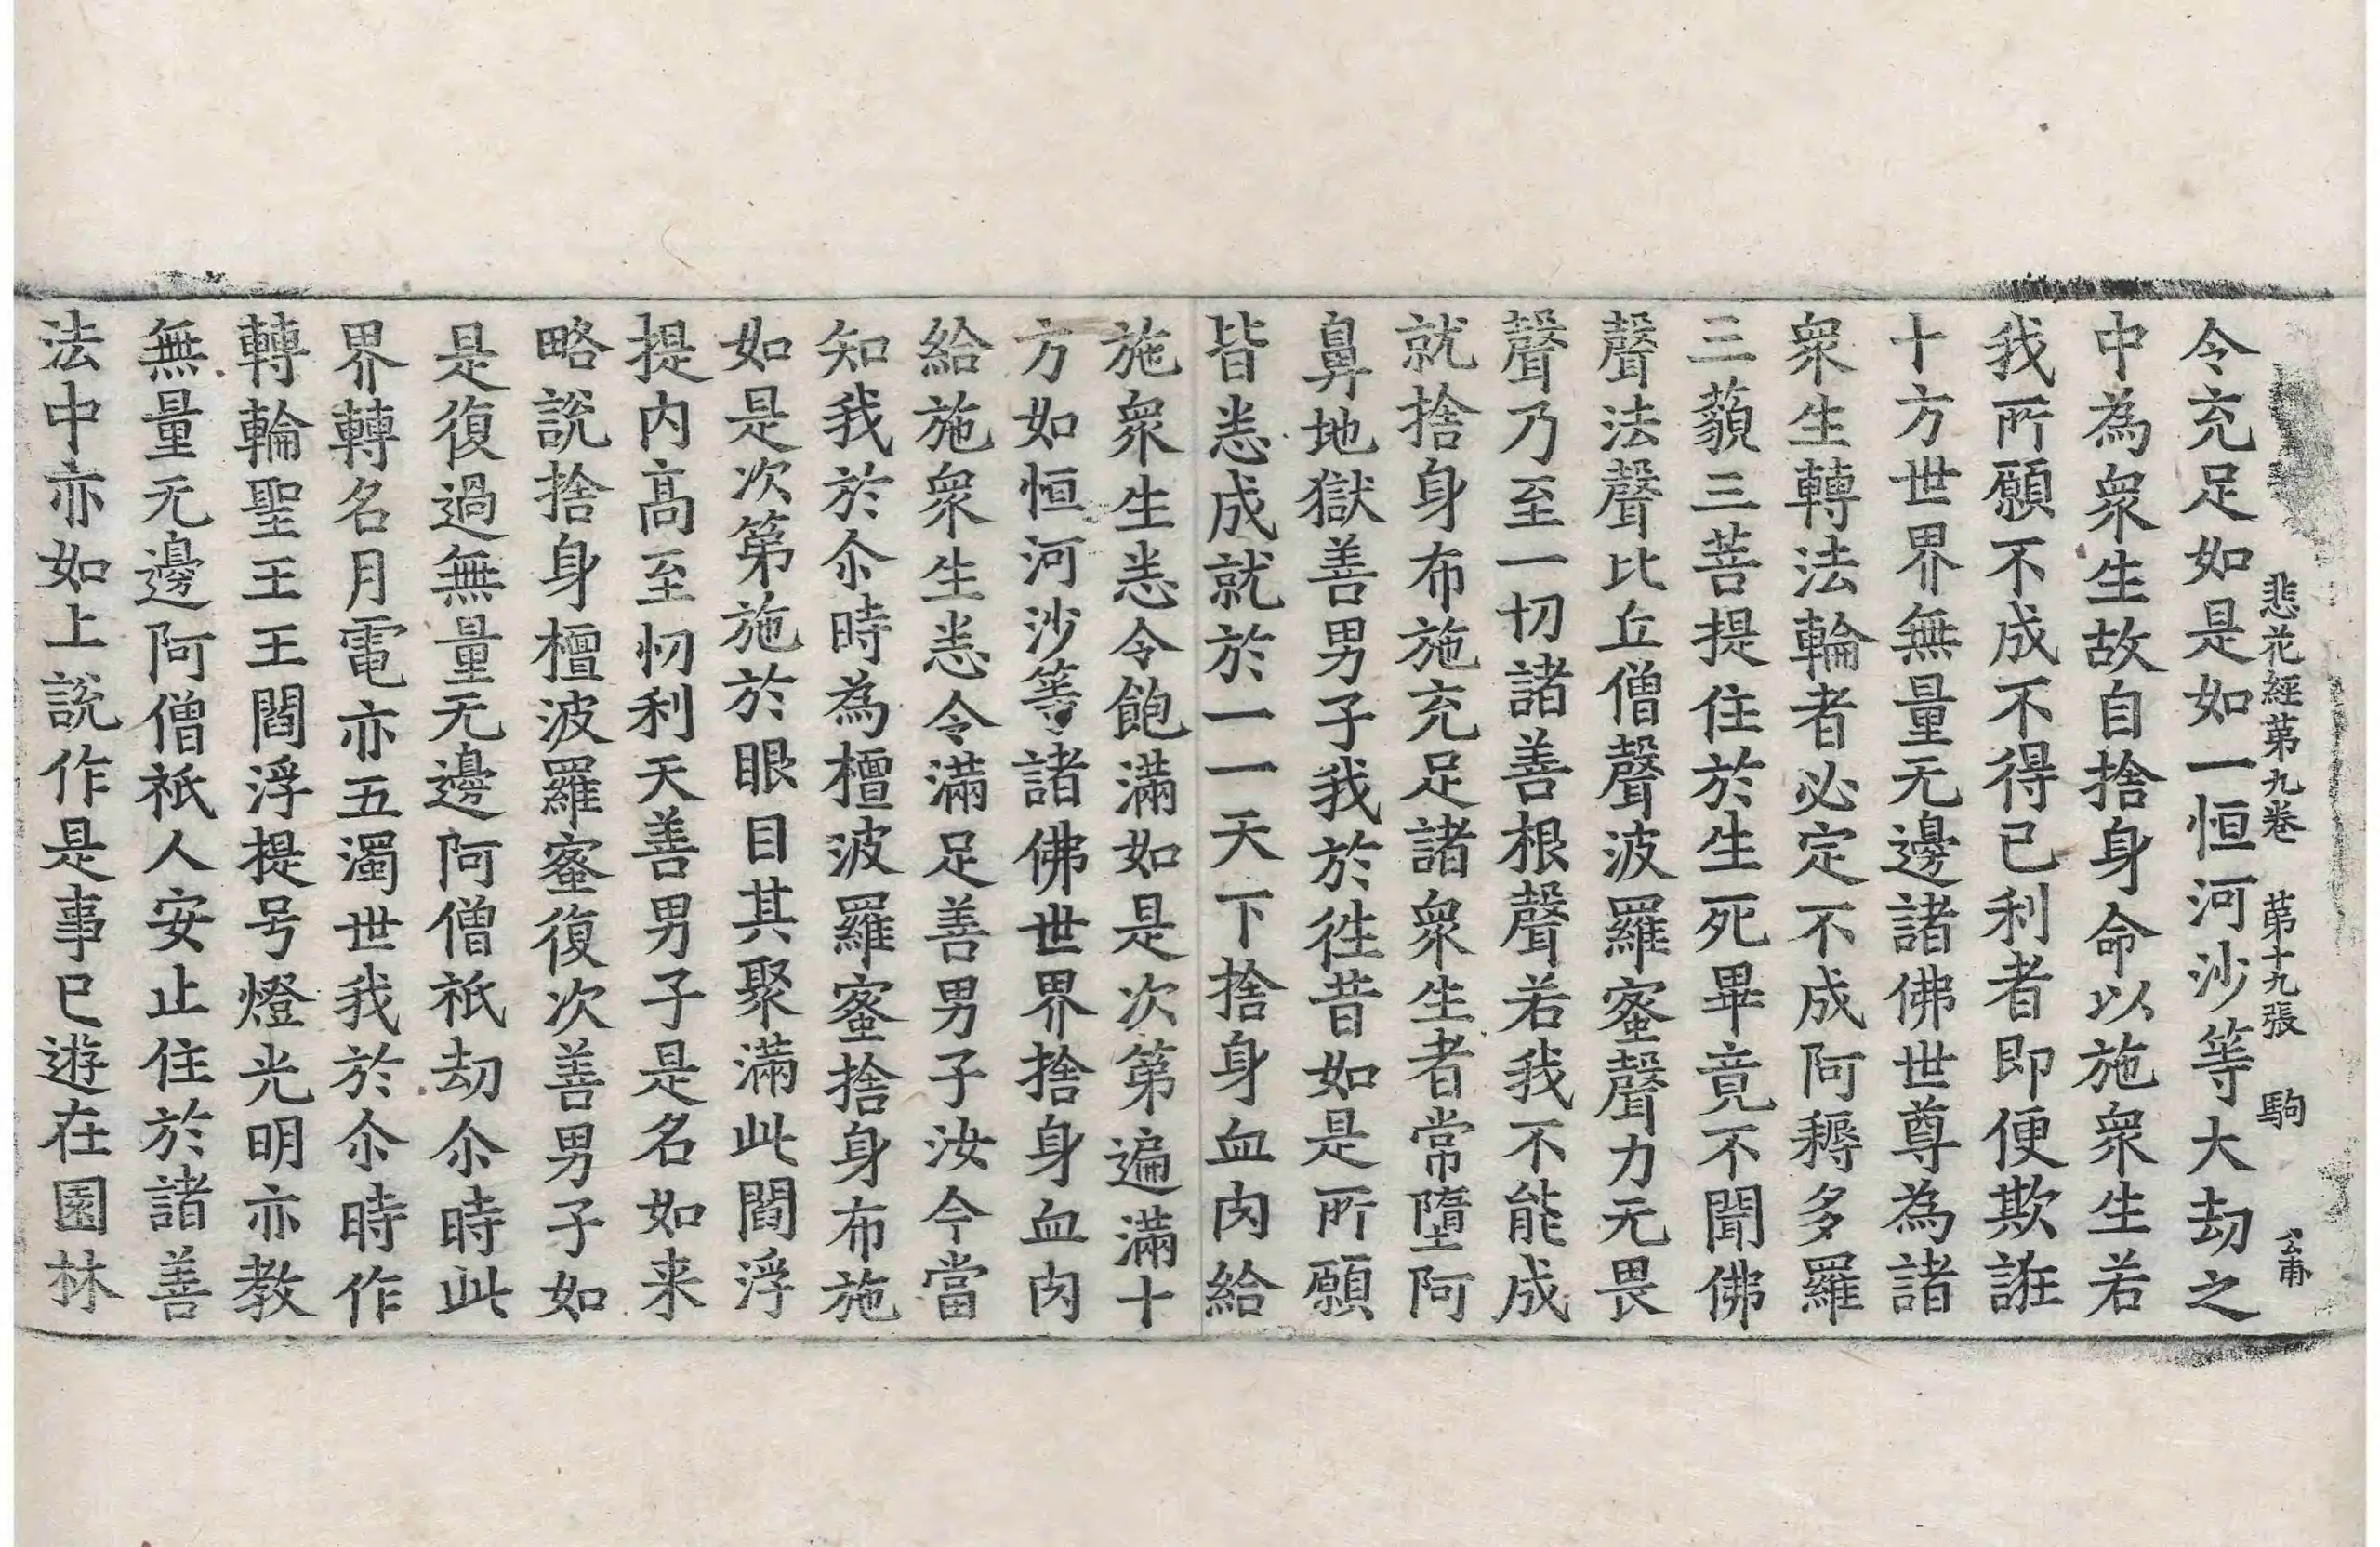 悲花經苐九卷　苐十九張　駒　公甫
令充足如是如一恒河沙等大劫之
中為衆生故自捨身命以施衆生若
我所願不成不得已利者即便欺誑
十方世界無量无邊諸佛世尊為諸
衆生轉法輪者必定不成阿耨多羅
三藐三菩提住於生死畢竟不聞佛
聲法聲比丘僧聲波羅蜜聲力无畏
聲乃至一切諸善根聲若我不能成
就捨身布施充足諸衆生者常墮阿
鼻地獄善男子我於徃昔如是所願
皆悉成就於一一天下捨身血肉給
施衆生悉令飽滿如是次第遍滿十
方如恒河沙等諸佛世界捨身血肉
給施衆生悉令滿足善男子汝今當
知我於尒時為檀波羅蜜捨身布施
如是次第施於眼目其聚滿此閻浮
提内高至忉利天善男子是名如来
略說捨身檀波羅蜜復次善男子如
是復過無量无邊阿僧祇劫尒時此
界轉名月電亦五濁世我於尒時作
轉輪聖王王閻浮提号燈光明亦教
無量无邊阿僧祇人安止住於諸善
法中亦如上說作是事已遊在園林